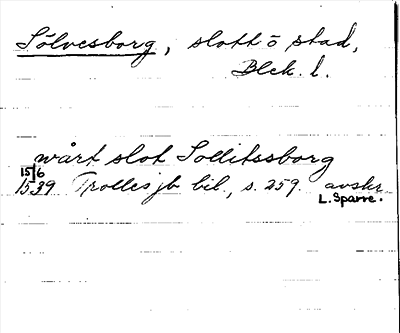 Sölvesborg, slott o stad,
Blek. l.
wårt slot Sollitssborg
15/6
1539 Trolles jb bil., s. 259. avskr.
L. Sparre.